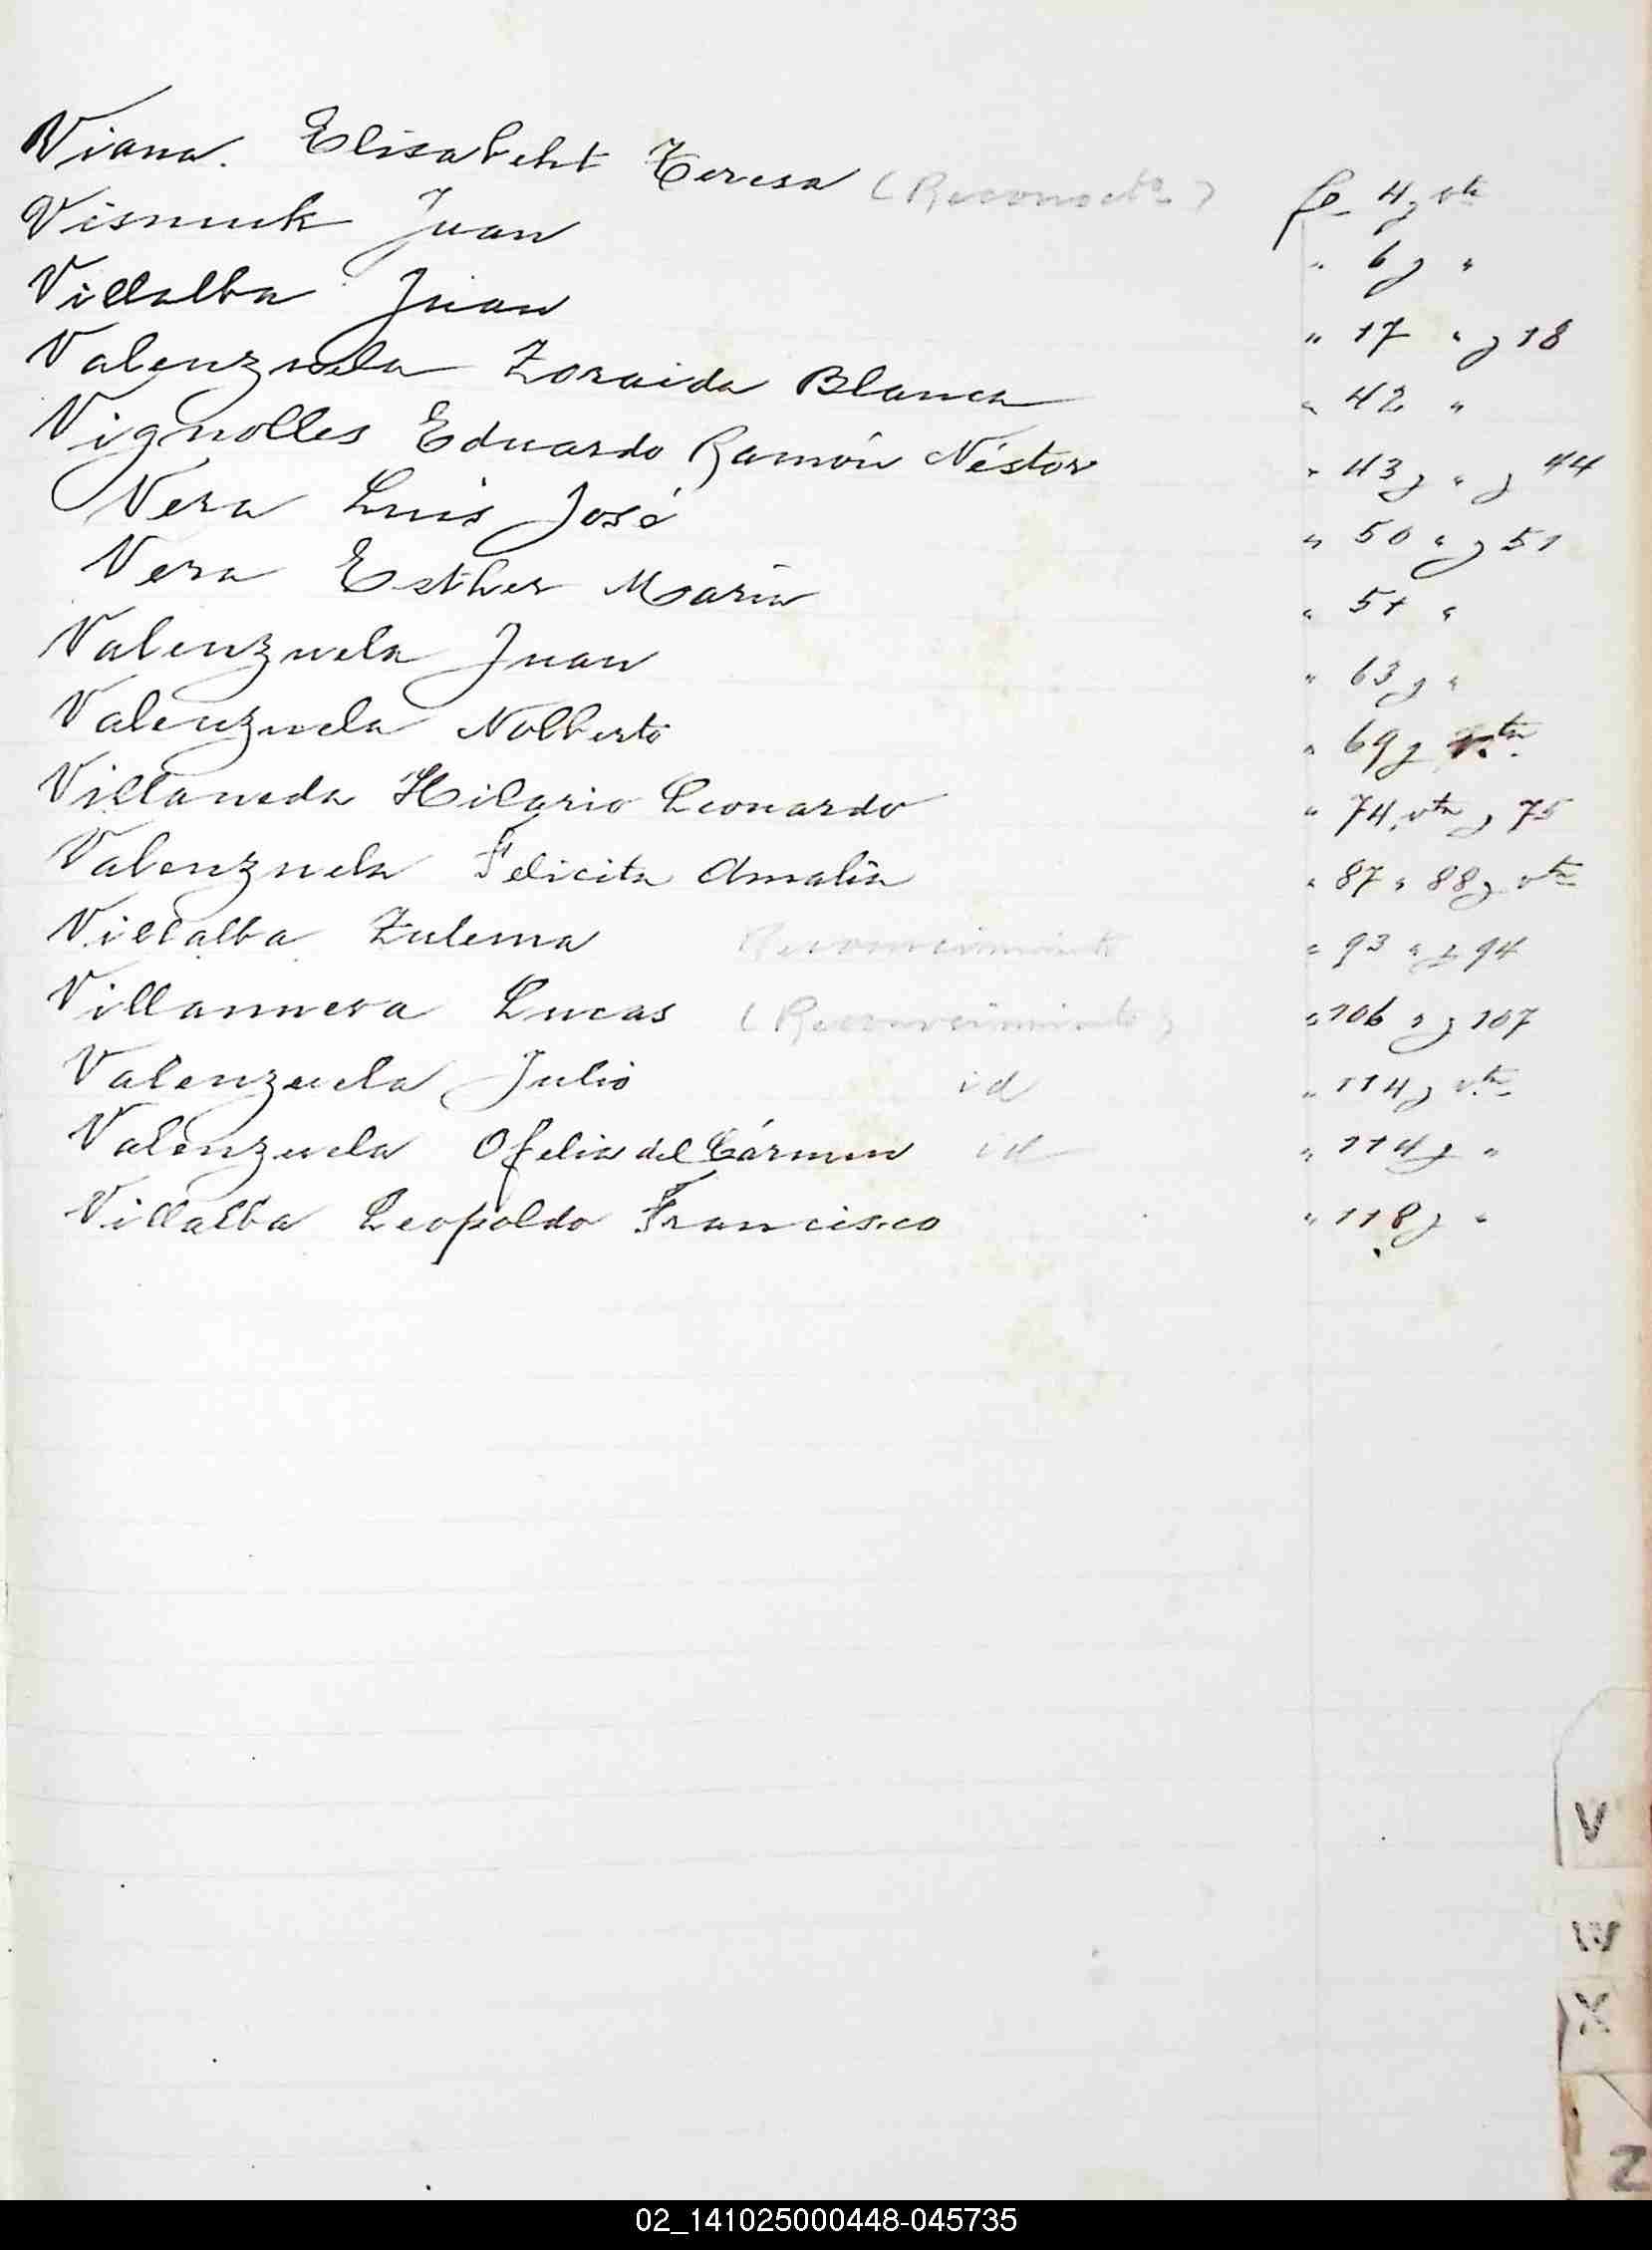 Viana. Elisabeht Teresa (Reconocto.) fo. 4 y vta
Visnuk Juan " 6 y "
Villalba Juan " 17 " y 18
Valenzuela Zoraida Blanca " 42 "
Vignolles Eduardo Ramón Néstor " 43 y " y 44
Vera Luis José " 50 " y 51
Vera Esther María " 51 "
Valenzuela Juan " 63 y "
Valenzuela Nolberto " 69 y vta.
Villaneda Hilario Leonardo " 74 vta y 75
Valenzuela Felicita Amalia " 87 " 88 y vta
Villalba Zulema Reconocimiento " 93 " y 94
Villanueva Lucas (Reconocimiento) " 106 " y 107
Valenzuela Julio id " 114 y vta.
Valenzuela Ofelia del Cármen id " 114 y "
Villalba Leopoldo Francisco " 118 y "
V
W
X
Z
02_141025000448-045735